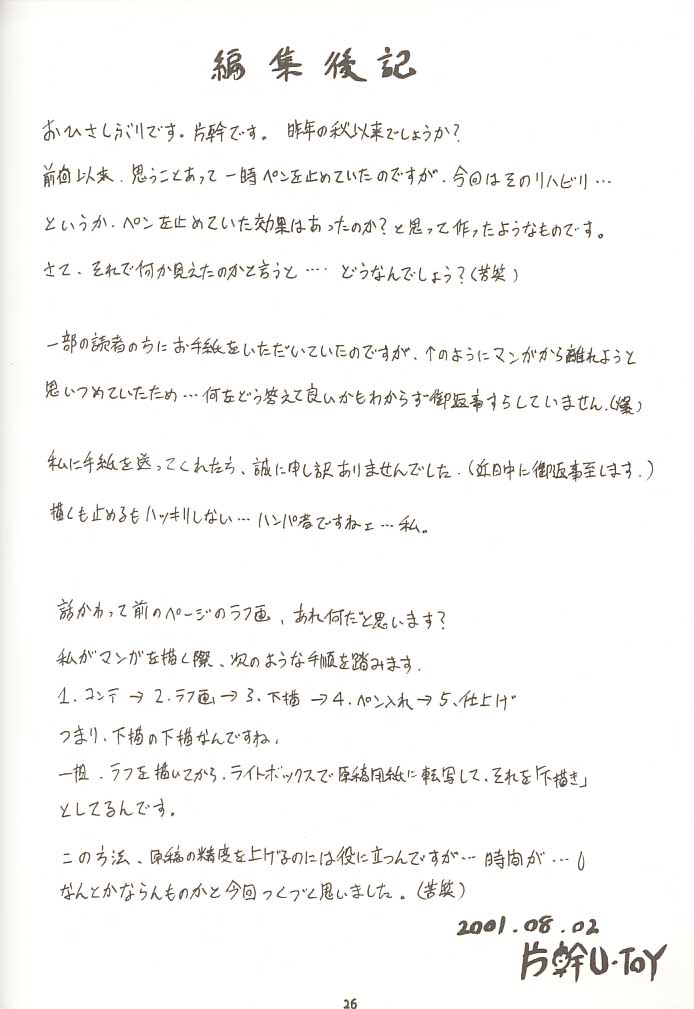 編集後記
おひさしぶりです。片幹です。 昨年の秋以来でしょうか?
前回以来、思うことあって一時ペンを止めていたのですが、今回はそのリハビリ…
というか、ペンを止めていた効果はあったのか?と思って作ったようなものです。
さて、それで何か見えたのかと言うと…. どうなんでしょう?(苦笑)
一部の読者のちにお手紙をいただいていたのですが、↑のようにマンガから離れようと
思いつめていたため…何をどう答えて良いかもわからず御返事すらしていません.(爆)
私に手紙を送ってくれたち、誠に申し訳ありませんでした.(近日中に御返事至します.)
描くも止めるもハッキリしない…ハンパ者ですねェ…私。
話かわって前のページのラフ画、あれ何だと思います?
私がマンガを描く際、次のような手順を踏みます.
1.コンテ→2.ラフ画→3.下描→4.ペン入れ→5.仕上げ
つまり、下描の下描なんですね.
一担、ラフを描いてから、ライトボックスで原稿用紙に転写して、それを「下描き」
としてるんです。
この方法、原稿の精度を上げるのには役に立つんですが…時間が…
なんとかならんものかと今回つくづくと思いました。(苦笑)
2001.08.02
片幹U・ToY
26